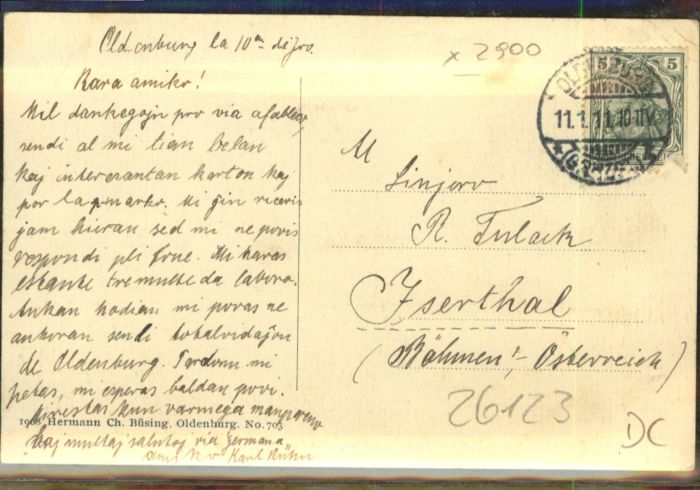 Oldenburg la 10an de Jan.
x 2900
Kara amiko!
Mil dankegojn pro via afableco
sendi al mi tian belan
kaj interesantan karton kaj
por la pmarko. Mi ĝin ricevis
jam hieraŭ sed mi ne povis
respondi pli frue. Mi havas
estante tre multe da laboro.
Ankaŭ hodiaŭ mi povas ne
ankoraŭ sendi
de Oldenburg. Pardonu mi
petas, mi esperas baldaŭ povi.
kun varmega manpremo
kaj multaj salutoj via germana
amiko Karl Kühn
1908 Hermann Ch. Büsing, Oldenburg. No. 703
5 5
OLDENBURG
11.1.11.10-11V.
(GRZH)
M
Sinjoro
R. Tulach
Iserthal
(Böhmen - Österreich)
26123
DC